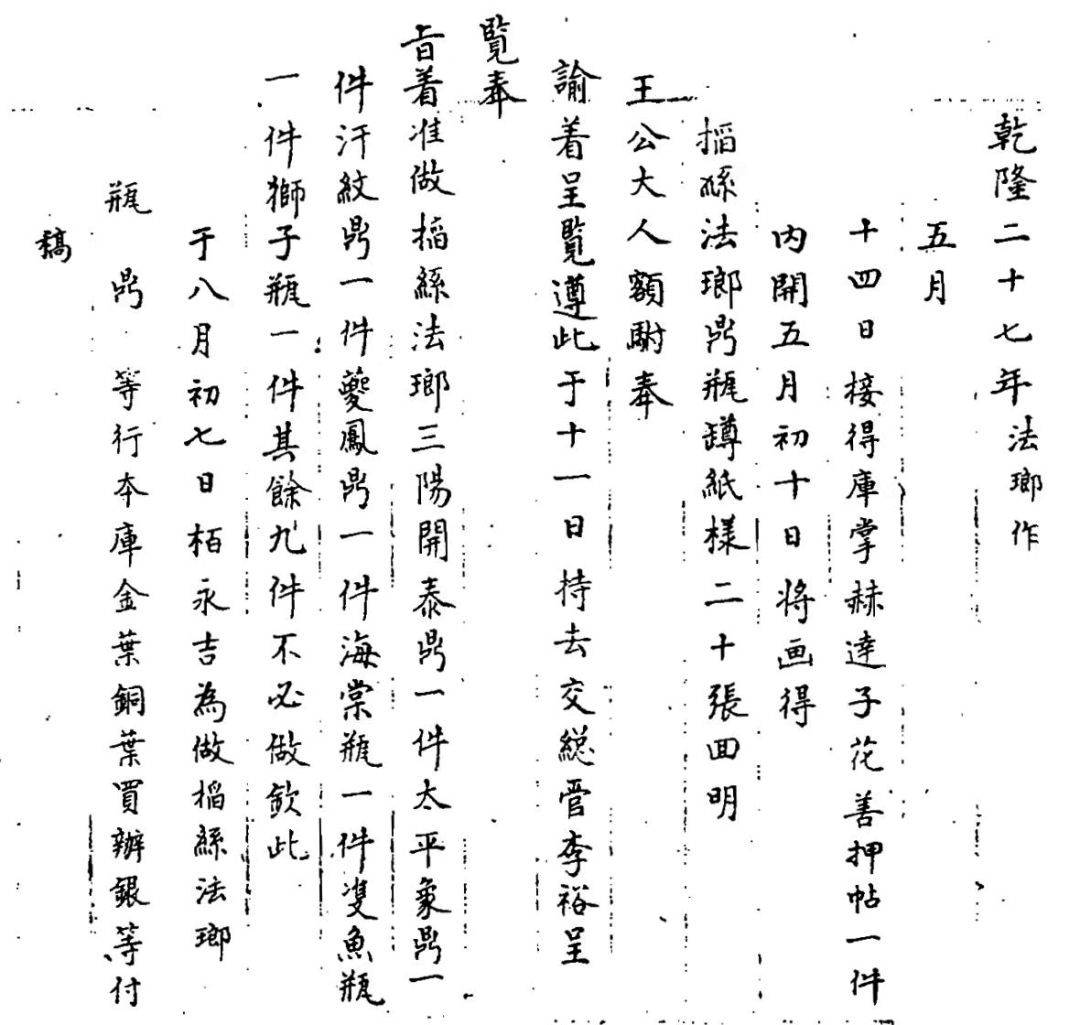 乾隆二十七年法瑯作
五月
十四日接得庫掌赫達子花善押帖一件
内開五月初十日将画得
掐絲法瑯鼎瓶罇紙様二十張回明
王公大人額駙奉
諭着呈覧遵此于十一日持去交総管李裕呈
覧奉
旨着准做掐絲法瑯三陽開泰鼎一件太平象鼎一
件汗紋鼎一件夔鳳鼎一件海棠瓶一件雙魚瓶
一件獅子瓶一件其餘九件不必做欽此
于八月初七日栢永吉為做掐絲法瑯
瓶鼎等行本庫金葉銅葉買辦銀等付
稿